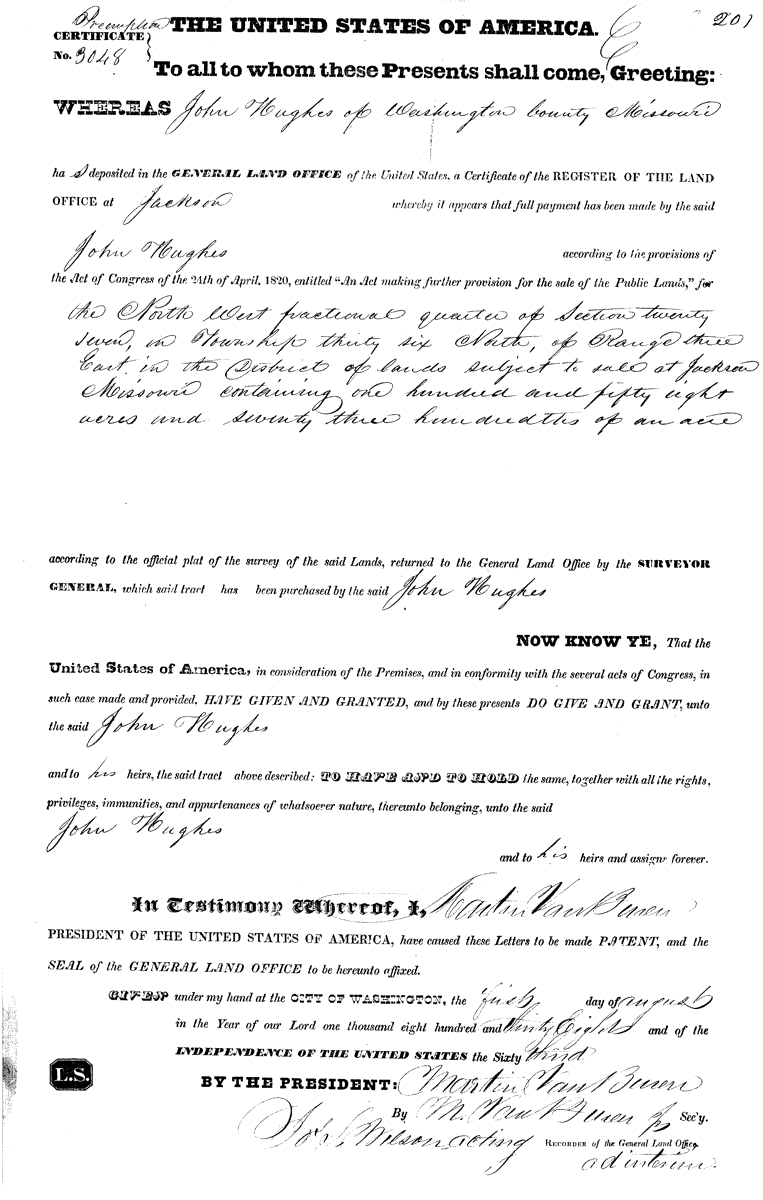 Preemption THE UNITED STATES OF AMERICA. 201
CERTIFICATE
No. 3048
To all to whom these Presents shall come, Greeting:
WHEREAS John Hughes of Washington County Missouri
ha s deposited in the GENERAL LAND OFFICE of the United States, a Certificate of the REGISTER OF THE LAND
OFFICE at Jackson whereby it appears that full payment has been made by the said
John Hughes according to the provisions of
the Act of Congress of the 24th of April, 1820, entitled “An Act making further provision for the sale of the Public Lands,” for
the North West fractional quarter of Section twenty
seven, in Township thirty six North, of Range three
East in the District of lands subject to sale at Jackson
Missouri containing one hundred and fifty eight
acres and seventy three hundredths of an acre
according to the official plat of the survey of the said Lands, returned to the General Land Office by the SURVEYOR
GENERAL, which said tract has been purchased by the said John Hughes
NOW KNOW YE, That the
United States of America, in consideration of the Premises, and in conformity with the several acts of Congress, in
such case made and provided, HAVE GIVEN AND GRANTED, and by these presents DO GIVE AND GRANT, unto
the said John Hughes
and to his heirs, the said tract above described: TO HAVE AND TO HOLD the same, together with all the rights,
privileges, immunities, and appurtenances of whatsoever nature, thereunto belonging, unto the said
John Hughes
and to his heirs and assigns forever.
In Testimony Whereof, I, Martin Van Buren
PRESIDENT OF THE UNITED STATES OF AMERICA, have caused these Letters to be made PATENT, and the
SEAL of the GENERAL LAND OFFICE to be hereunto affixed.
GIVEN under my hand at the CITY OF WASHINGTON, the first day of august
in the Year of our Lord one thousand eight hundred and thirty Eight and of the
INDEPENDENCE OF THE UNITED STATES the Sixty third
L.S.
BY THE PRESIDENT: Martin Van Buren
By M. Van Buren Jr Sec'y.
Jos. S. Wilson acting RECORDER of the General Land Office.
ad interim.